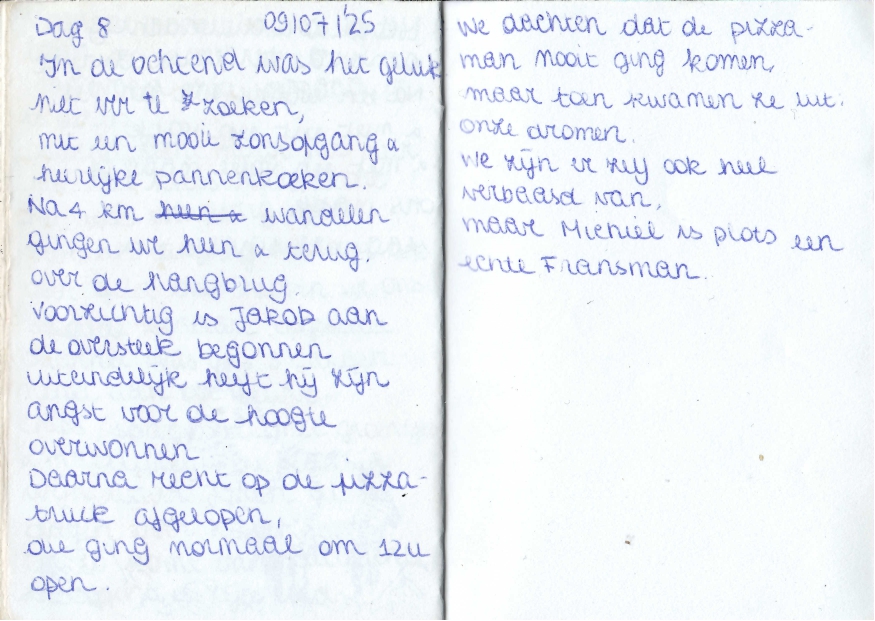 Dag 8 09/07/'25
In de ochtend was het geluk
niet ver te zoeken,
met een mooie zonsopgang &
heerlijke pannenkoeken.
Na 4 km heen & wandelen
gingen we heen & terug
over de hangbrug.
Voorzichtig is Jakob aan
de oversteek begonnen
uiteindelijk heeft hij zijn
angst voor de hoogte
overwonnen.
Daarna recht op de pizza-
truck afgelopen,
die ging normaal om 12u
open.
We dachten dat de pizza-
man nooit ging komen,
maar toen kwamen ze uit
onze dromen.
We zijn er zelf ook heel
verbaasd van,
maar Michiel is plots een
echte Fransman.